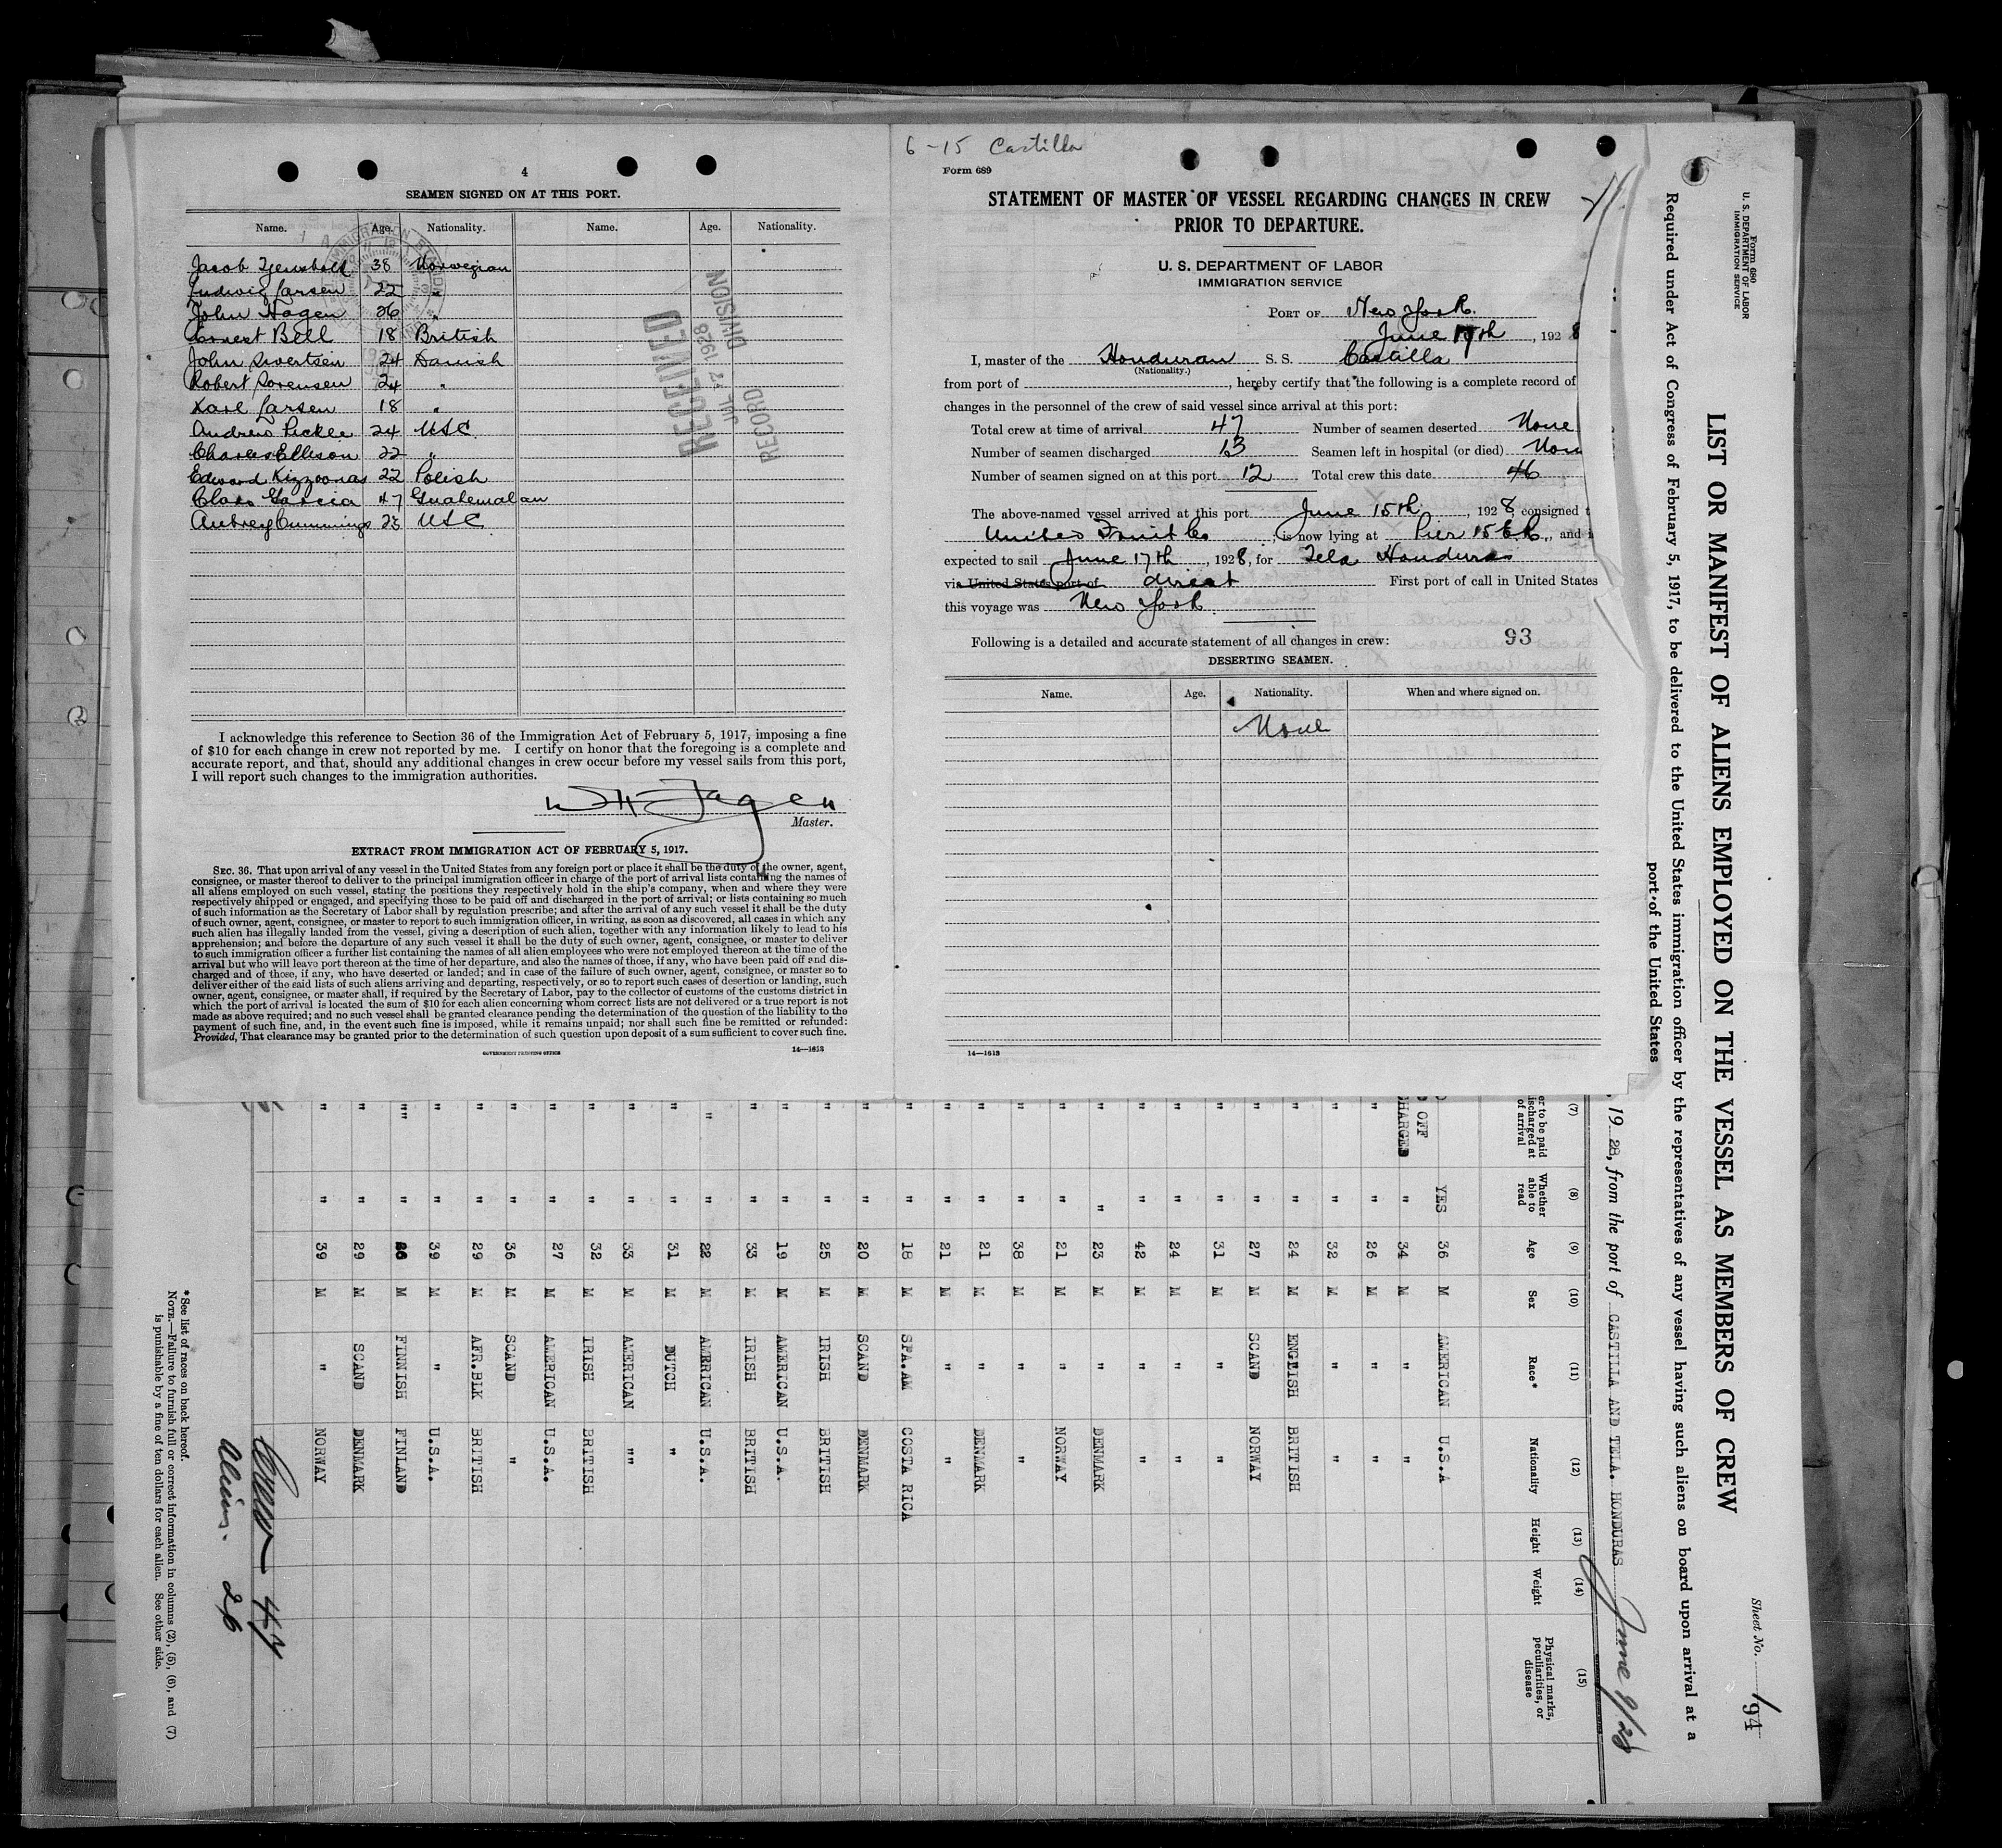 4
SEAMEN SIGNED ON AT THIS PORT.
Name. Age. Nationality. Name. Age. Nationality.
Jacob 38 Norwegian
Ludwig Larsen 22 "
John Hagen 26 "
Ernest Bell 18 British
John Sivertsen 24 Danish
Robert Sorensen 24 "
Karl Larsen 18 "
Andrew Pickle 24 USC
Charles Ellison 22 "
Edward 22 Polish
Garcia 47 Guatemalan
Aubrey Cummings 23 USC
RECEIVED
JUL 12 1928
RECORD DIVISION
I acknowledge this reference to Section 36 of the Immigration Act of February 5, 1917, imposing a fine
of $10 for each change in crew not reported by me. I certify on honor that the foregoing is a complete and
accurate report, and that, should any additional changes in crew occur before my vessel sails from this port,
I will report such changes to the immigration authorities.
Master.
EXTRACT FROM IMMIGRATION ACT OF FEBRUARY 5, 1917.
SEC. 36. That upon arrival of any vessel in the United States from any foreign port or place it shall be the duty of the owner, agent,
consignee, or master thereof to deliver to the principal immigration officer in charge of the port of arrival lists containing the names of
all aliens employed on such vessel, stating the positions they respectively hold in the ship's company, when and where they were
respectively shipped or engaged, and specifying those to be paid off and discharged in the port of arrival; or lists containing so much
of such information as the Secretary of Labor shall by regulation prescribe; and after the arrival of any such vessel it shall be the duty
of such owner, agent, consignee, or master to report to such immigration officer, in writing, as soon as discovered, all cases in which any
such alien has illegally landed from the vessel, giving a description of such alien, together with any information likely to lead to his
apprehension; and before the departure of any such vessel it shall be the duty of such owner, agent, consignee, or master to deliver
to such immigration officer a further list containing the names of all alien employees who were not employed thereon at the time of the
arrival but who will leave port thereon at the time of her departure, and also the names of those, if any, who have been paid off and dis-
charged and of those, if any, who have deserted or landed; and in case of the failure of such owner, agent, consignee, or master so to
deliver either of the said lists of such aliens arriving and departing, respectively, or so to report such cases of desertion or landing, such
owner, agent, consignee, or master shall, if required by the Secretary of Labor, pay to the collector of customs of the customs district in
which the port of arrival is located the sum of $10 for each alien concerning whom correct lists are not delivered or a true report is not
made as above required; and no such vessel shall be granted clearance pending the determination of the question of the liability to the
payment of such fine, and, in the event such fine is imposed, while it remains unpaid; nor shall such fine be remitted or refunded:
Provided, That clearance may be granted prior to the determination of such question upon deposit of a sum sufficient to cover such fine.
GOVERNMENT PRINTING OFFICE 14—1613
6-15 Castilla
Form 689
STATEMENT OF MASTER OF VESSEL REGARDING CHANGES IN CREW
PRIOR TO DEPARTURE.
U. S. DEPARTMENT OF LABOR
IMMIGRATION SERVICE
PORT OF New York.
June 17th, 1928
I, master of the Honduran S. S. Castilla
(Nationality.)
from port of , hereby certify that the following is a complete record of
changes in the personnel of the crew of said vessel since arrival at this port:
Total crew at time of arrival 47 Number of seamen deserted None
Number of seamen discharged 13 Seamen left in hospital (or died) Non
Number of seamen signed on at this port 12 Total crew this date 46
The above-named vessel arrived at this port June 15th, 1928, consigned t
United Fruit Co, is now lying at Pier 15 E.R., and i
expected to sail June 17th, 1928, for Tela Honduras
via United States port of direct First port of call in United States
this voyage was New York.
Following is a detailed and accurate statement of all changes in crew: 93
DESERTING SEAMEN.
Name. Age. Nationality. When and where signed on.
None
14—1613
Form 680
U. S. DEPARTMENT OF LABOR
IMMIGRATION SERVICE
Sheet No. 1
94
LIST OR MANIFEST OF ALIENS EMPLOYED ON THE VESSEL AS MEMBERS OF CREW
Required under Act of Congress of February 5, 1917, to be delivered to the United States immigration officer by the representatives of any vessel having such aliens on board upon arrival at a
port of the United States
, 1928, from the port of CASTILLA AND TELA. HONDURAS June 9/28
(7) (8) (9) (10) (11) (12) (13) (14) (15)
er to be paid
ischarged at
of arrival
Whether able to read
Age
Sex
Race*
Nationality
Height
Weight
Physical marks, peculiarities, or disease
OFF YES 36 M AMERICAN U.S.A
HARGED " 34 M " "
" " 26 M " "
" " 32 M " "
" " 24 M ENGLISH BRITISH
" " 27 M SCAND NORWAY
" " 31 M " "
" " 24 M " "
" " 42 M " "
" " 23 M " DENMARK
" " 21 M " NORWAY
" " 38 M "
" " 21 M " DENMARK
" " 21 M " "
" " 18 M SPA.AM COSTA RICA
" " 20 M SCAND DENMARK
" " 25 M IRISH BRITISH
" " 19 M AMERICAN U.S.A.
" " 33 M IRISH BRITISH
" " 22 M AMERICAN U.S.A.
" " 31 M DUTCH "
" " 33 M AMERICAN ""
" " 32 M IRISH BRITISH
" " 27 M AMERICAN U.S.A.
" " 36 M SCAND "
" " 29 M AFR.BLK BRITISH
" " 39 M " U.S.A.
"" " 26 M FINNISH FINLAND
" " 29 M SCAND DENMARK
" " 39 M " NORWAY
Crew 47
Alien. 26
*See list of races on back hereof.
NOTE.—Failure to furnish full or correct information in columns (2), (5), (6), and (7)
is punishable by a fine of ten dollars for each alien. See other side.